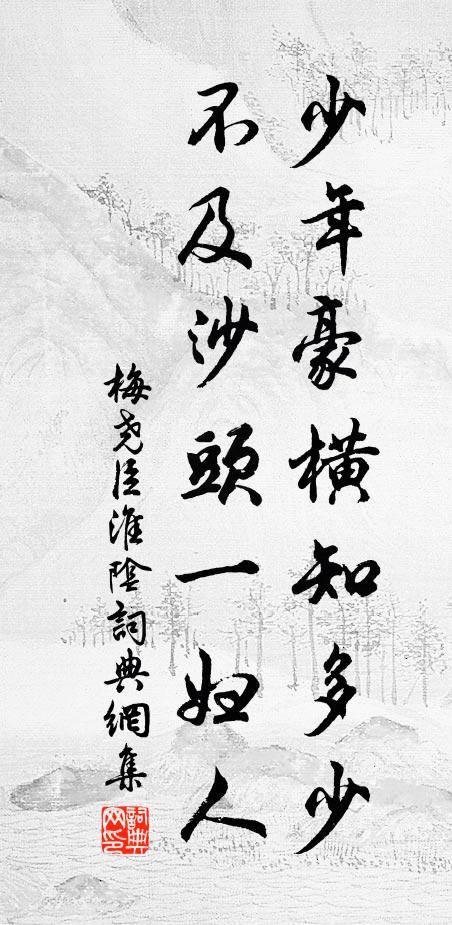 少年豪橫知多少
不及沙頭一妇人
梅尧臣淮陰詞典網集
詞典网印